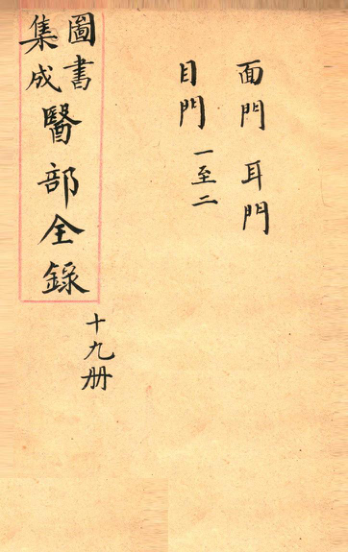 面門 耳門
目門 一至二
圖書集成醫部全錄
十九册